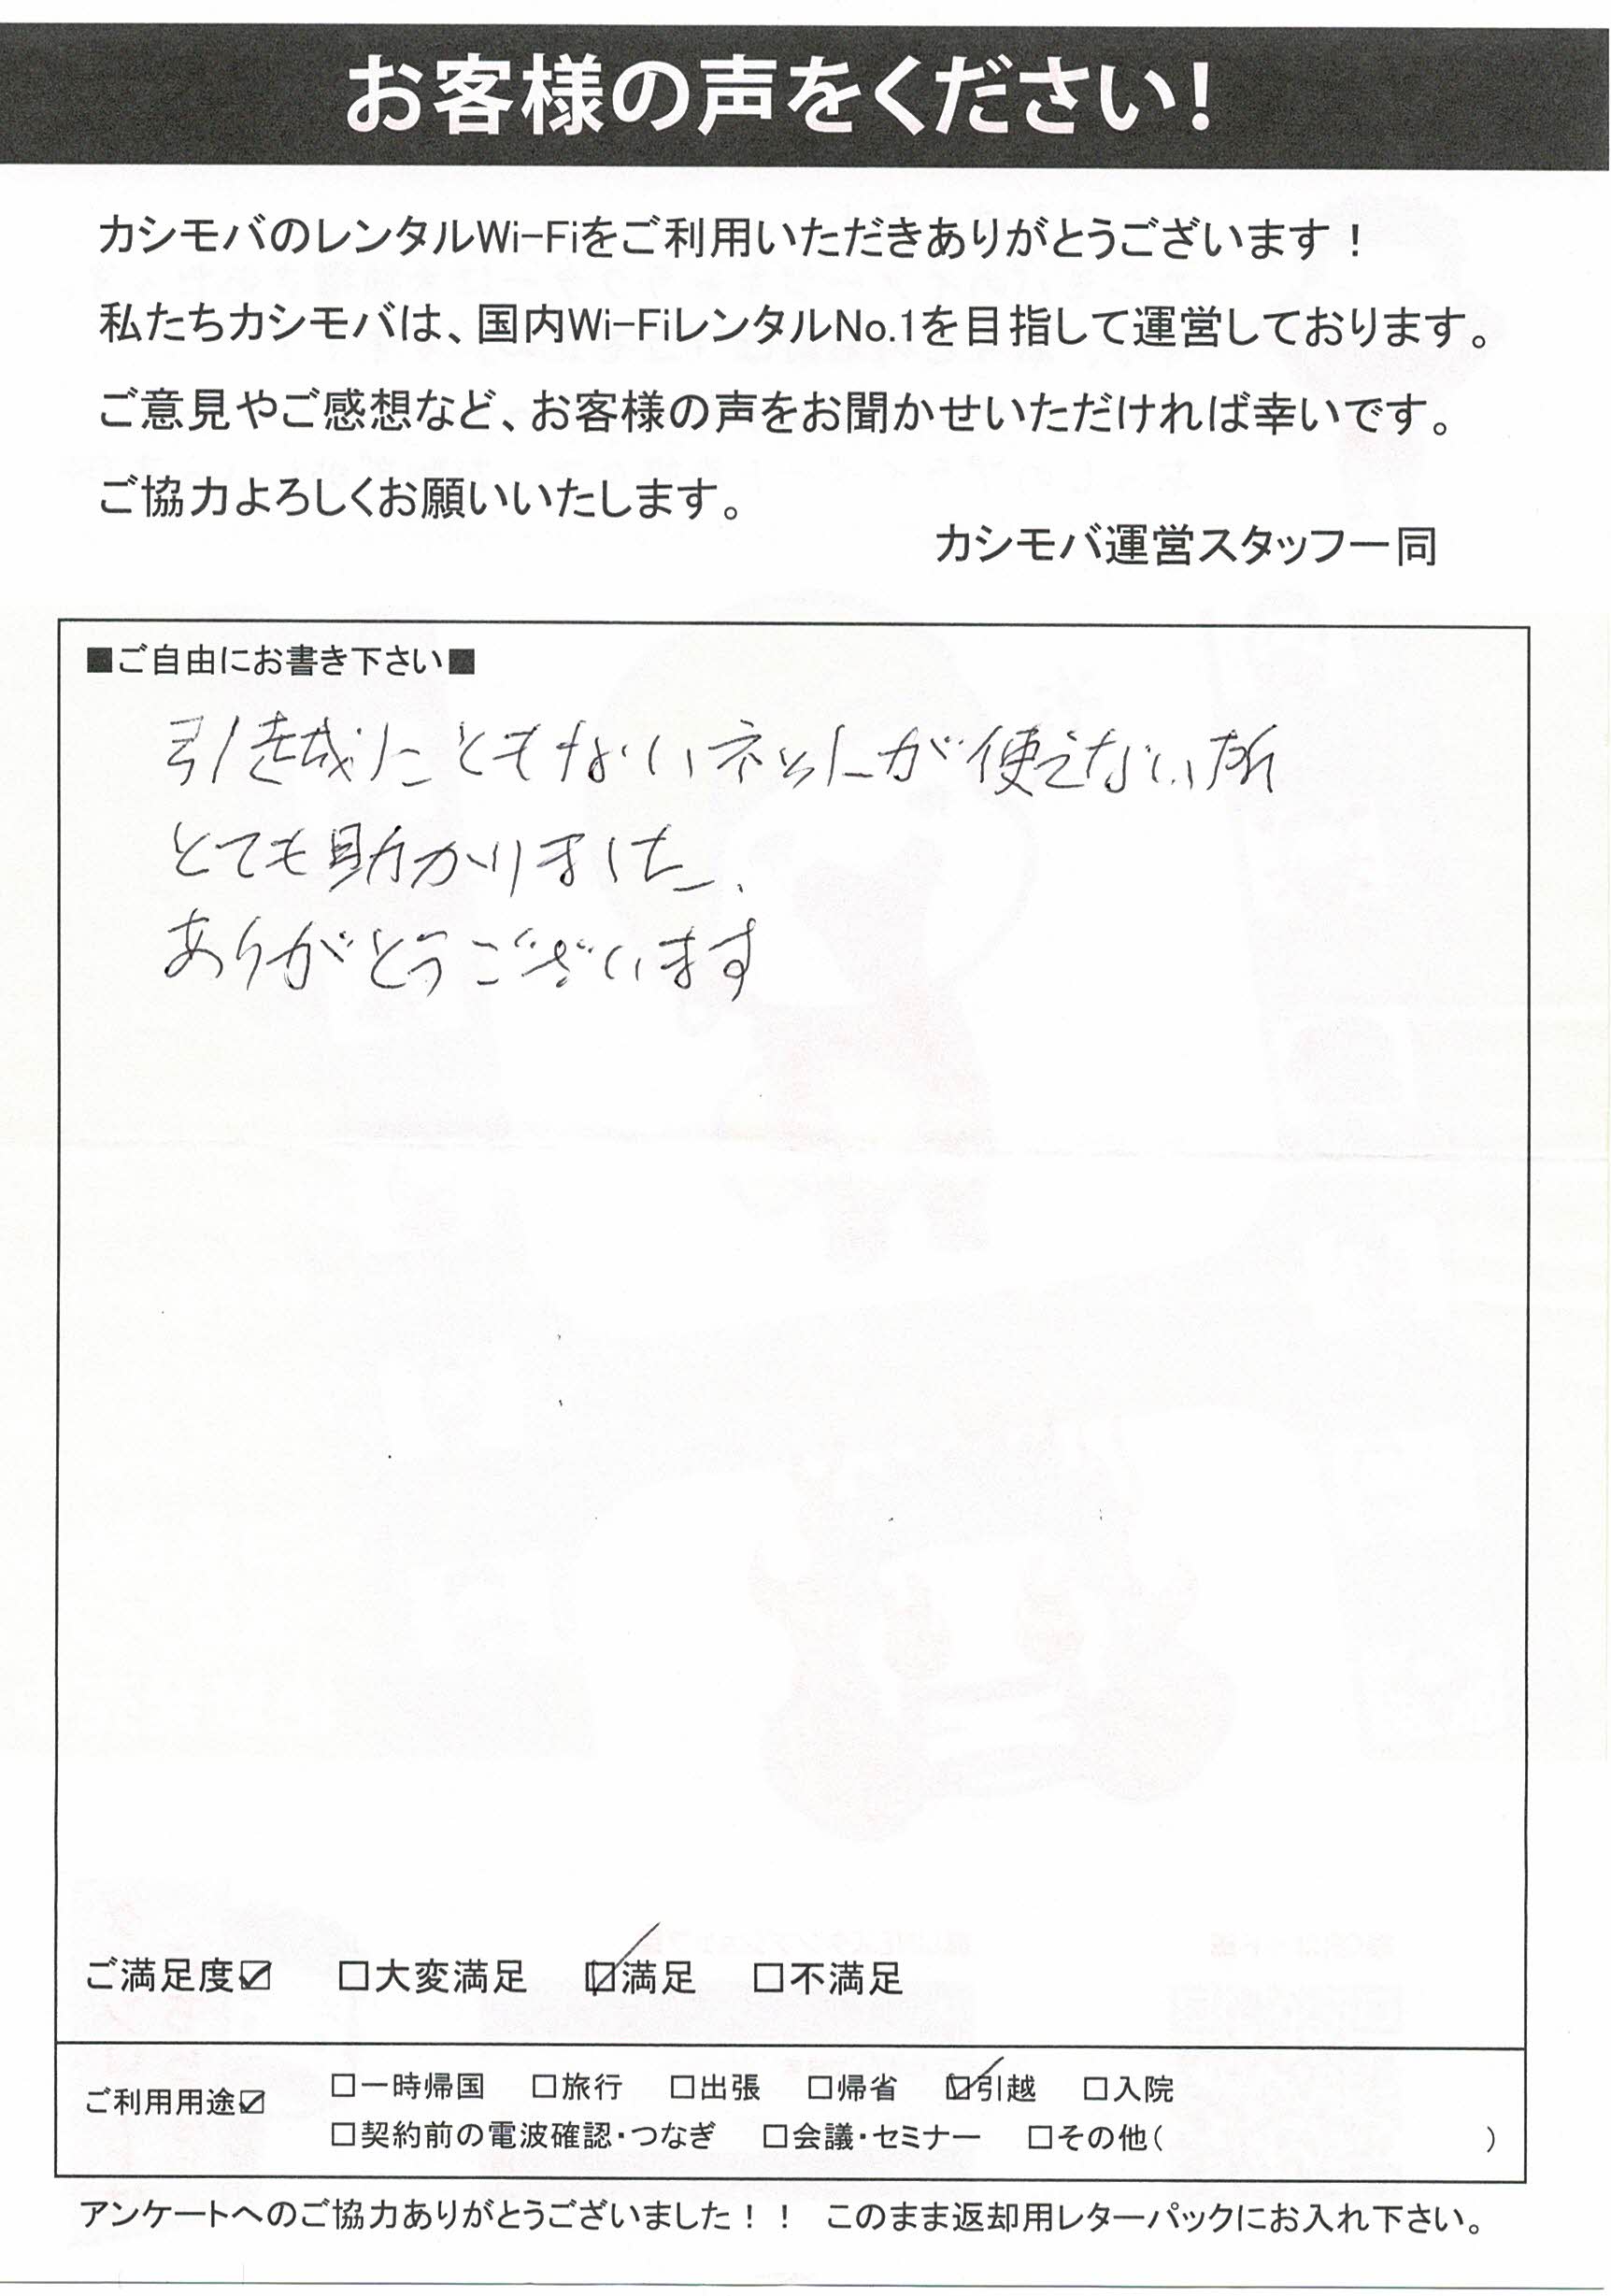 お客様の声をください!
カシモバのレンタルWi-Fiをご利用いただきありがとうございます！
私たちカシモバは、国内Wi-FiレンタルNo.1を目指して運営しております。
ご意見やご感想など、お客様の声をお聞かせいただければ幸いです。
ご協力よろしくお願いいたします。
カシモバ運営スタッフ一同
■ご自由にお書き下さい■
引越にともないネットが使えない所
とても助かりました、
ありがとうございます
ご満足度☑ □大変満足 ☑満足 □不満足
ご利用用途☑ □一時帰国 □旅行 □出張 □帰省 ☑引越 □入院
□契約前の電波確認・つなぎ □会議・セミナー □その他( )
アンケートへのご協力ありがとうございました！！ このまま返却用レターパックにお入れ下さい。